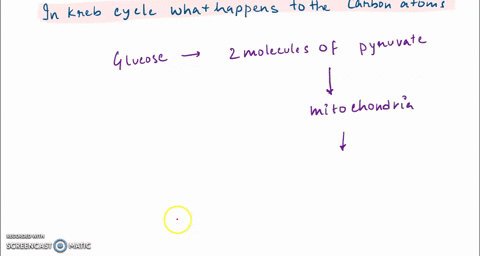 In Kreb cycle what happens to the Carbon atoms
Glucose → 2 molecules of pyruvate
↓
mitochondria
↓
RECORDED WITH
SCREENCAST MATIC